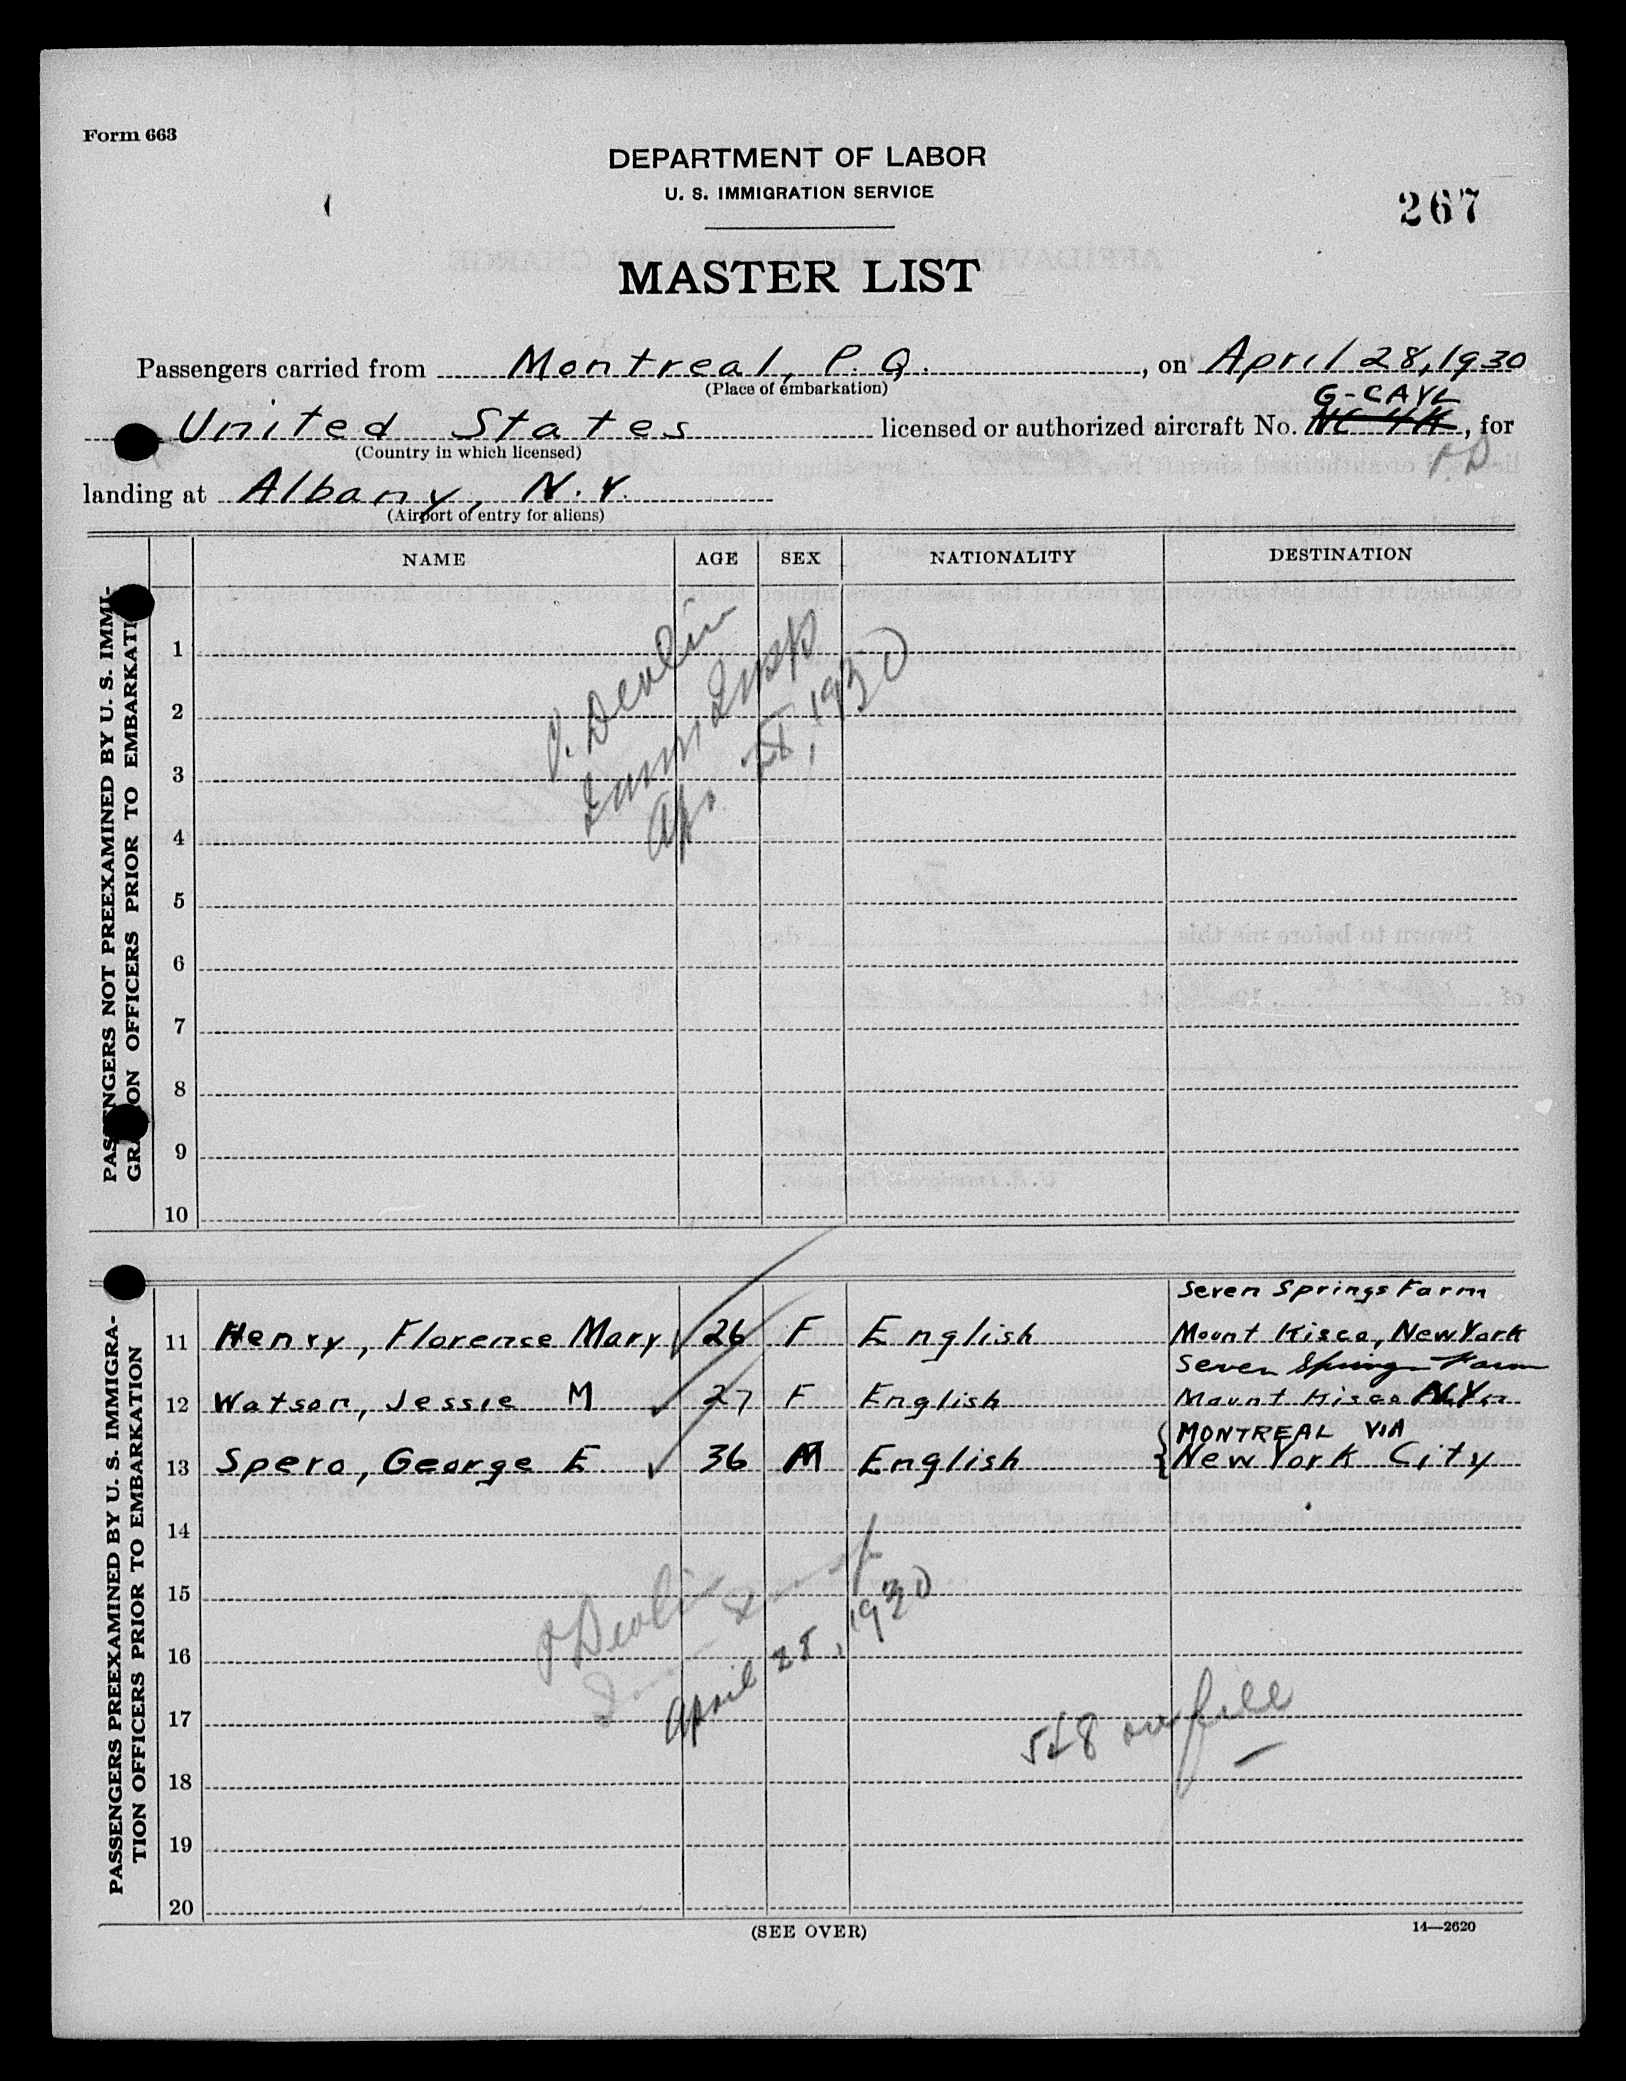 Form 663
DEPARTMENT OF LABOR
U. S. IMMIGRATION SERVICE
267
MASTER LIST
Passengers carried from Montreal, P. Q. , on April 28, 1930
(Place of embarkation)
G-CAYL
United States licensed or authorized aircraft No. , for
(Country in which licensed)
landing at Albany, N.Y.
(Airport of entry for aliens)
NAME AGE SEX NATIONALITY DESTINATION
PASSENGERS NOT PREEXAMINED BY U. S. IMMI-
GRATION OFFICERS PRIOR TO EMBARKATION
1
2
3
4
5
6
7
8
9
10
Devlin
Imm Insp
Ap. 28, 1930
PASSENGERS PREEXAMINED BY U. S. IMMIGRA-
TION OFFICERS PRIOR TO EMBARKATION
Seven Springs Farm
11 Henry, Florence Mary 26 F English Mount Kisco, New York
Seven Springs Farm
12 Watson, Jessie M 27 F English Mount Kisco N.Y.
MONTREAL VIA
13 Spero, George E 36 M English New York City
14
15
16
17
18
19
20
Devlin
April 28, 1930
548 on file
(SEE OVER)
14—2620